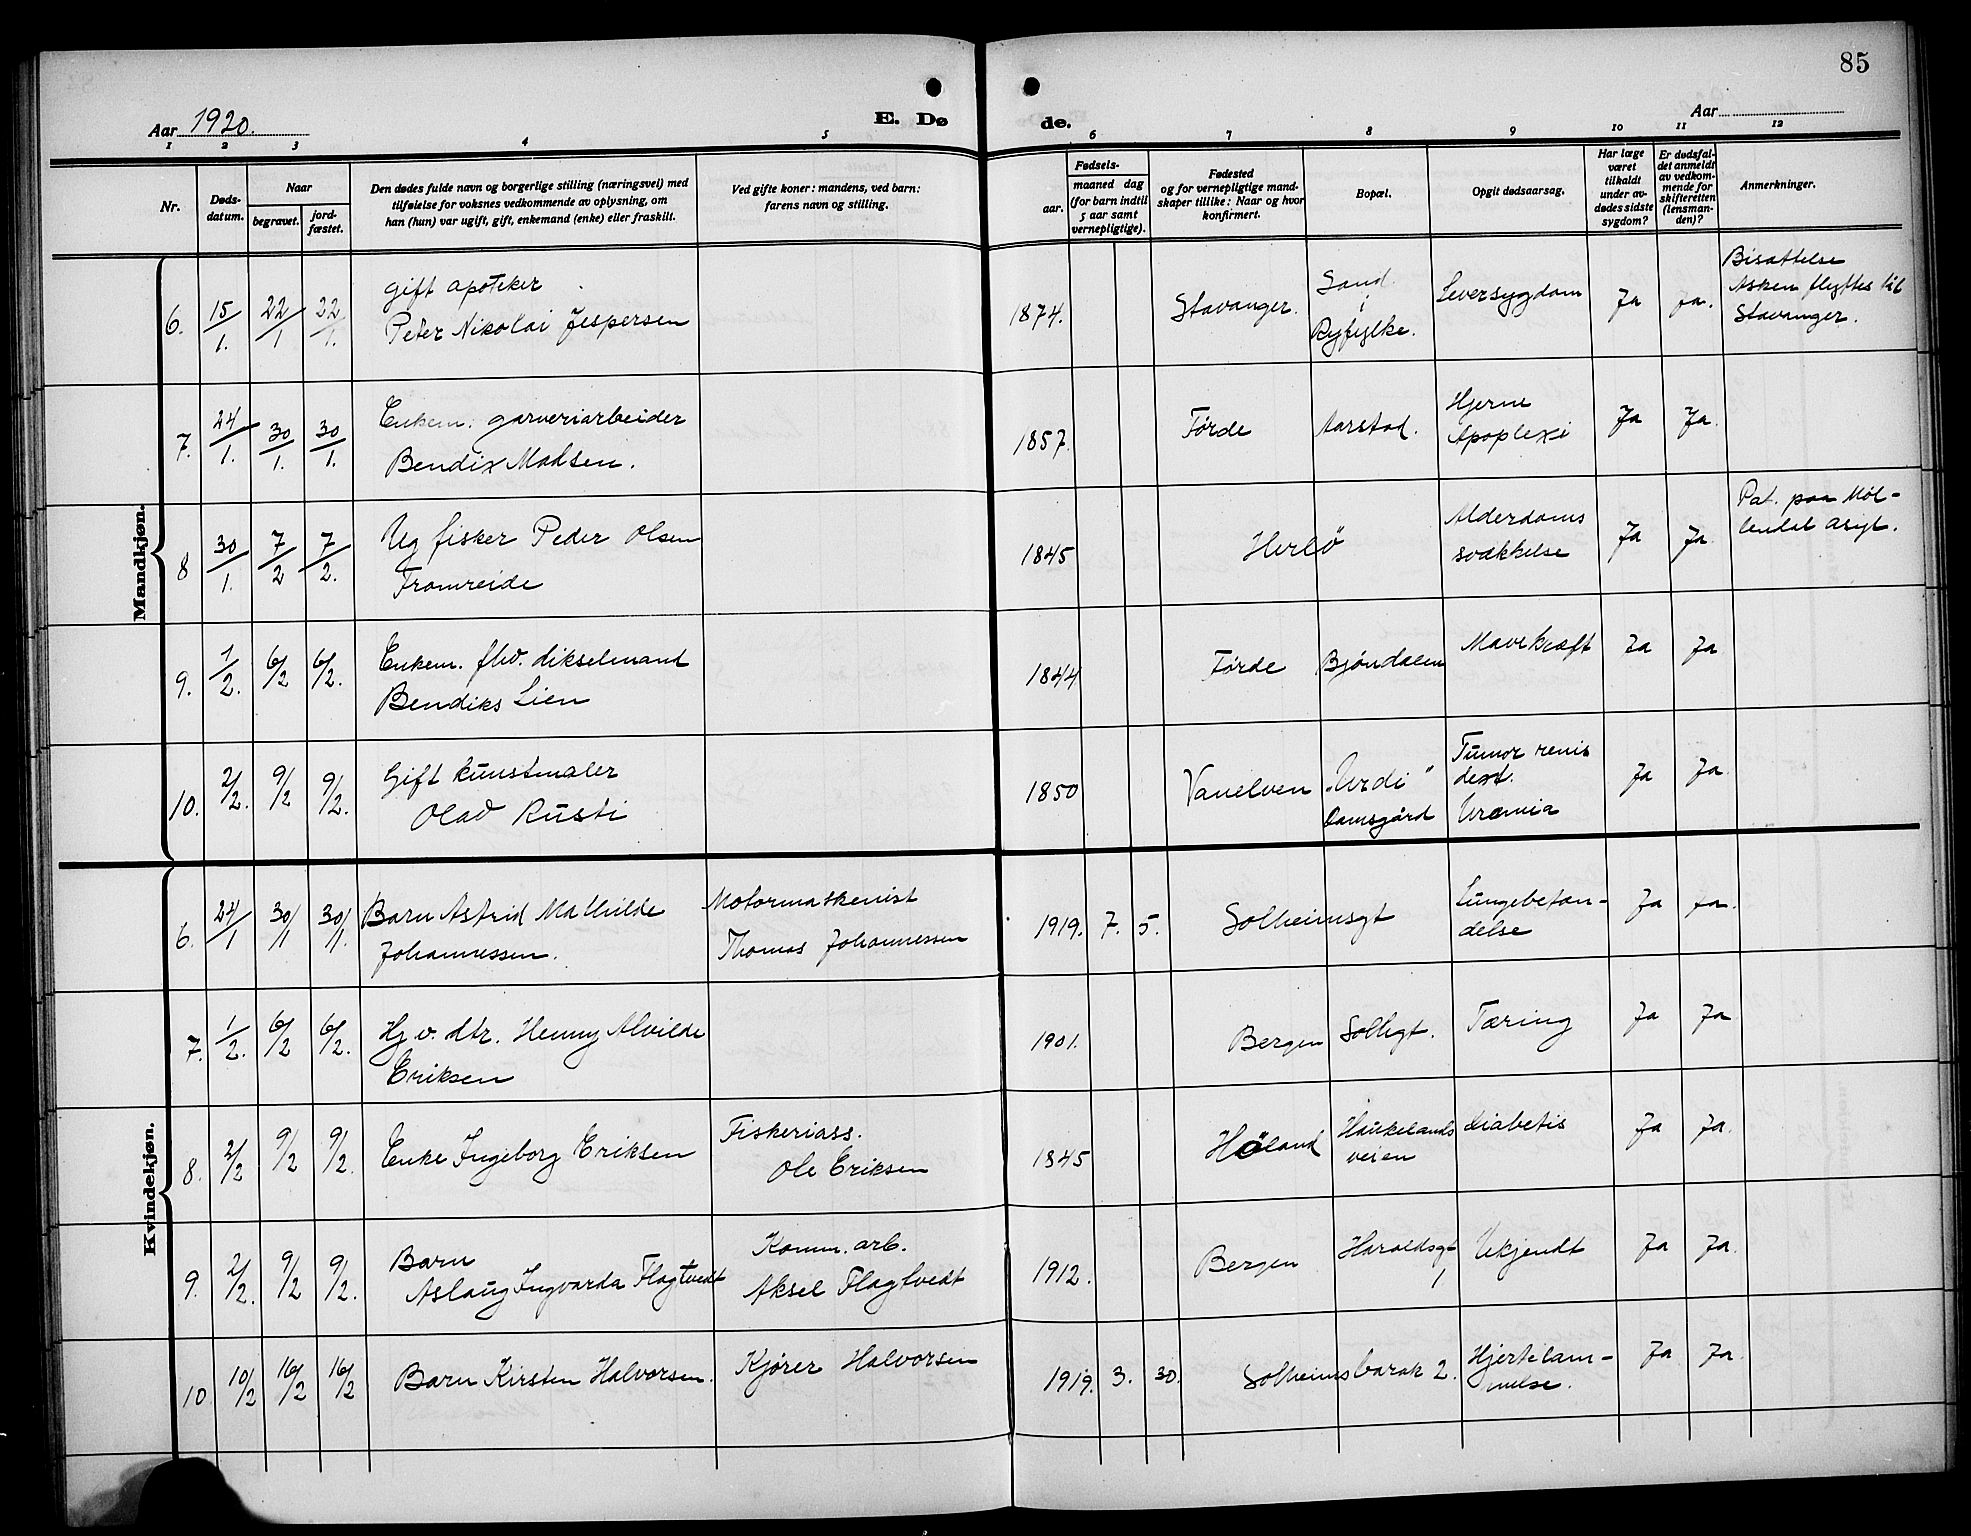 85
Aar 1920.
E. Dø
de.
Aar
1 2 3 4 5 6 7 8 9 10 11 12
Nr.
Døds-
datum.
Naar
begravet.
jord-
fæstet.
Den dødes fulde navn og borgerlige stilling (næringsvei) med
tilføielse for voksnes vedkommende av oplysning, om
han (hun) var ugift, gift, enkemand (enke) eller fraskilt.
Ved gifte koner: mandens, ved barn:
farens navn og stilling.
Fødsels-
aar.
maaned dag
(for barn indtil
5 aar samt
vernepligtige).
Fødested
og for vernepligtige mand-
skaper tillike: Naar og hvor
konfirmert.
Bopæl.
Opgit dødsaarsag.
Har læge
været
tilkaldt
under av-
dødes sidste
sygdom?
Er dødsfal-
det anmeldt
av vedkom-
mende for
skifteretten
(lensman-
den)?
Anmerkninger.
Mandkjøn.
6. 15/1. 22/1 22/1.
gift apoteker
Peter Nikolai Jespersen
1874.
Stavanger.
Sand
i
Ryfylke.
Leversygdom
Ja
Ja.
Bisættelse
Asken flyttes til
Stavanger.
7. 24/1. 30/1. 30/1.
Enkem. garveriarbeider
Bendix Madsen.
1857.
Førde
Aarstad.
Hjerne
Apoplexi
Ja
Ja.
8 30/1. 7/2 7/2.
Ug fisker Peder Olsen
Fromreide
1845
Herlö
Alderdoms
svækkelse
Ja
Ja
Pat. paa Møl-
lendal asyl.
9. 1/2. 6/2 6/2.
Enkem. fhv. dikselmand
Bendiks Lien
1844
Førde
Bjöndalen
Mavekræft
Ja
Ja
10. 2/2. 9/2 9/2.
Gift kunstmaler
Olad Rusti
1850
Vanelven
"Urdi"
Damsgård
Tumor renis
dext.
Uræmia
Ja
Ja
Kvindekjøn.
6. 24/1 30/1 30/1.
Barn Astrid Mathilde
Johannessen.
Motormaskenist
Thomas Johannessen
1919. 7. 5.
Solheimsgt
Lungebetæn-
delse
Ja
Ja.
7. 1/2. 6/2 6/2.
Hj v. dtr. Henny Alvilde
Eriksen
1901.
Bergen
Solhgt.
Tæring
Ja
Ja
8. 2/2 9/2 9/2.
Enke Ingeborg Eriksen
Fiskeriass.
Ole Eriksen
1845
Höland
Haukelands
veien
Diabetis
Ja
Ja.
9. 2/2. 9/2 9/2.
Barn
Aslaug Ingvarda Flagtvedt
Komm. arb.
Aksel Flagtvedt
1912.
Bergen
Haroldsgt
1
Ukjendt
Ja
Ja.
10 10/2 16/2 16/2
Barn Kirsten Halvorsen.
Kjører Halvorsen
1919. 3. 30.
Solheimsbarak 2.
Hjertelam-
melse.
Ja
Ja.